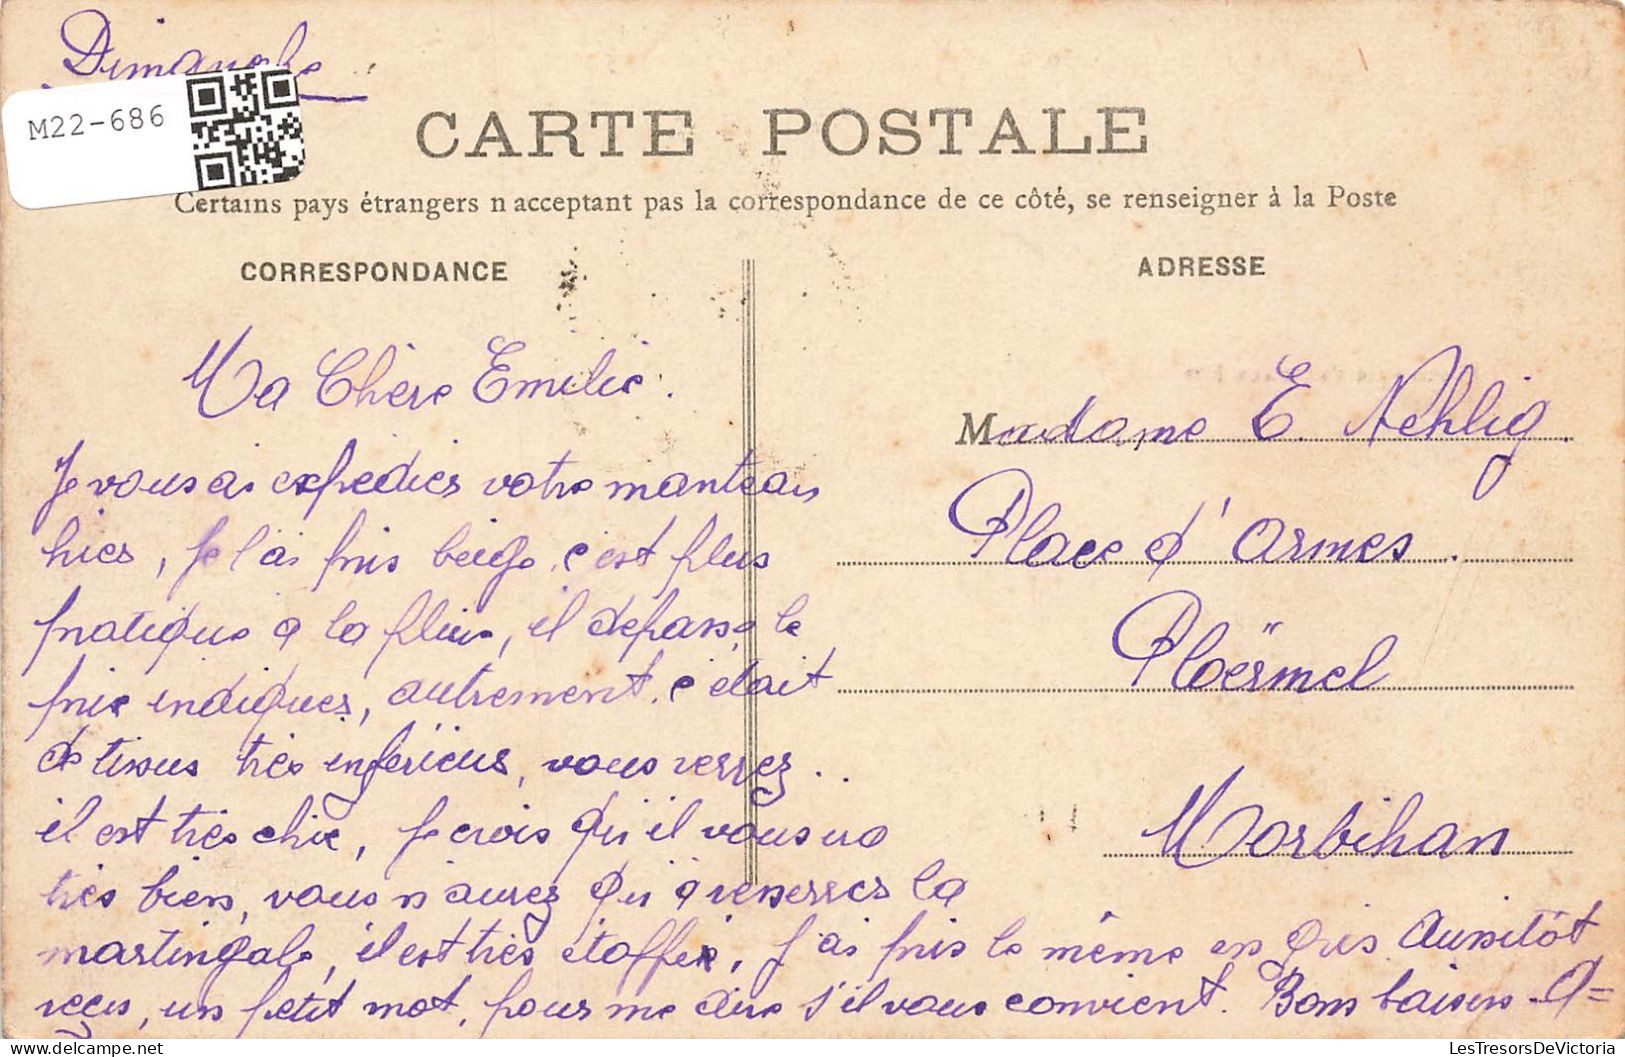 Dimanche
M22-686
CARTE POSTALE
Certains pays étrangers n'acceptant pas la correspondance de ce côté, se renseigner à la Poste
CORRESPONDANCE
ADRESSE
Ma Chère Emilie.
Je vous ai expedier votre manteau
hier, je l'ai pris beige, c'est plus
pratique a la pluie, il depasse le
prix indiquer, autrement c'etait
de tissus très inférieur, vous verrez..
il est très chic, je crois qu'il vous ira
très bien, vous n'aurez qu'a renserrer la
martingale, il est très étoffer, j'ai pris le même en gris. Aussitôt
reçu, un petit mot, pour me dire s'il vous convient. Bons baisers
Madame E. Nehlig.
Place d'armes.
Ploërmel
Morbihan
LesTresorsDeVictoria